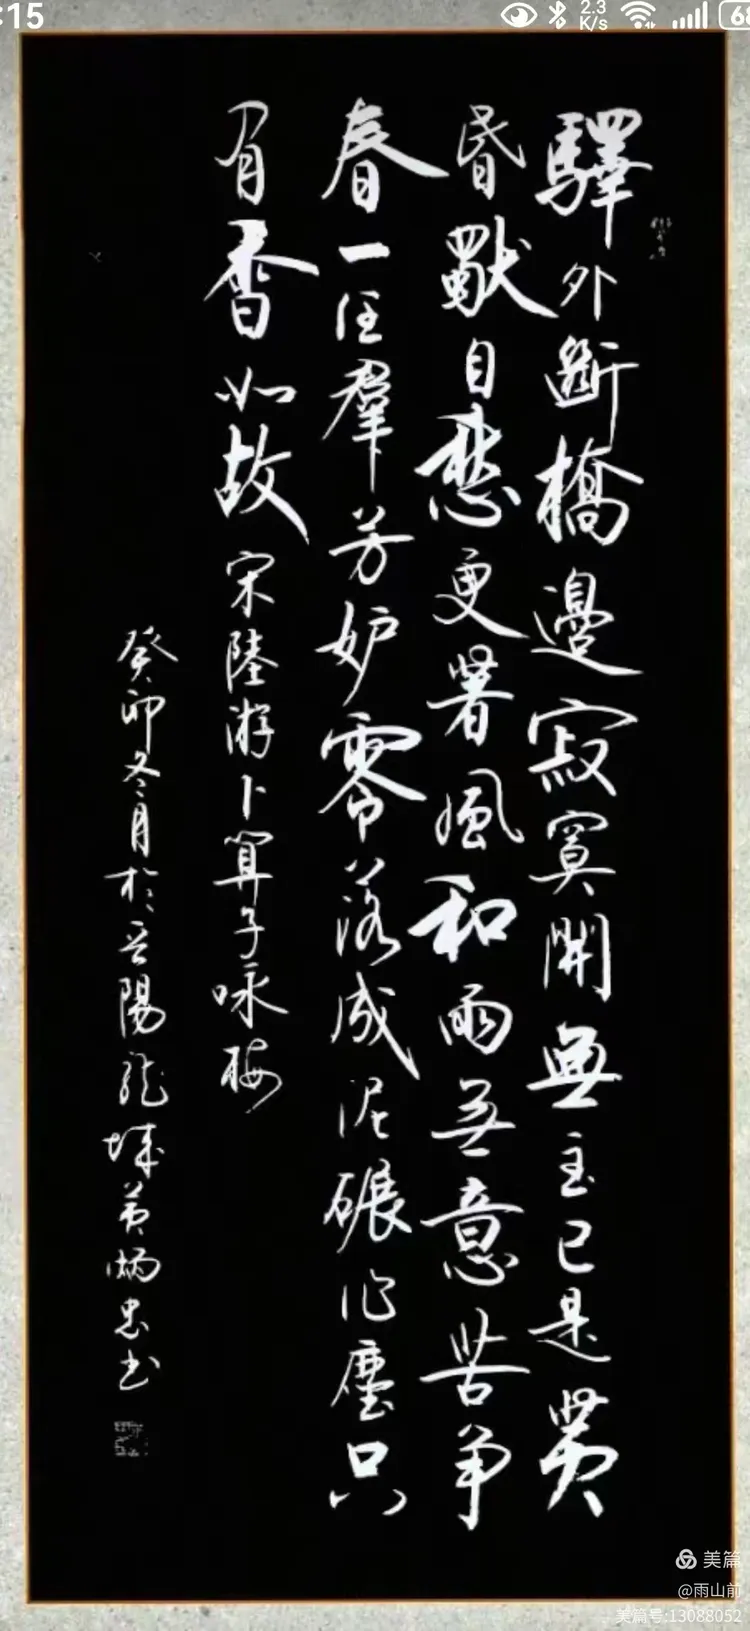 :15
2.3
K/s
驛外斷橋邊寂寞開無主已是黄
昏獻自愁更著風和雨无意苦争
春一任羣芳妒零落成泥碾作塵只
有香如故 宋陸游卜算子咏梅
癸卯冬月於晋陽龍城黄炳忠书
美篇
@雨山前
美篇号:13088052